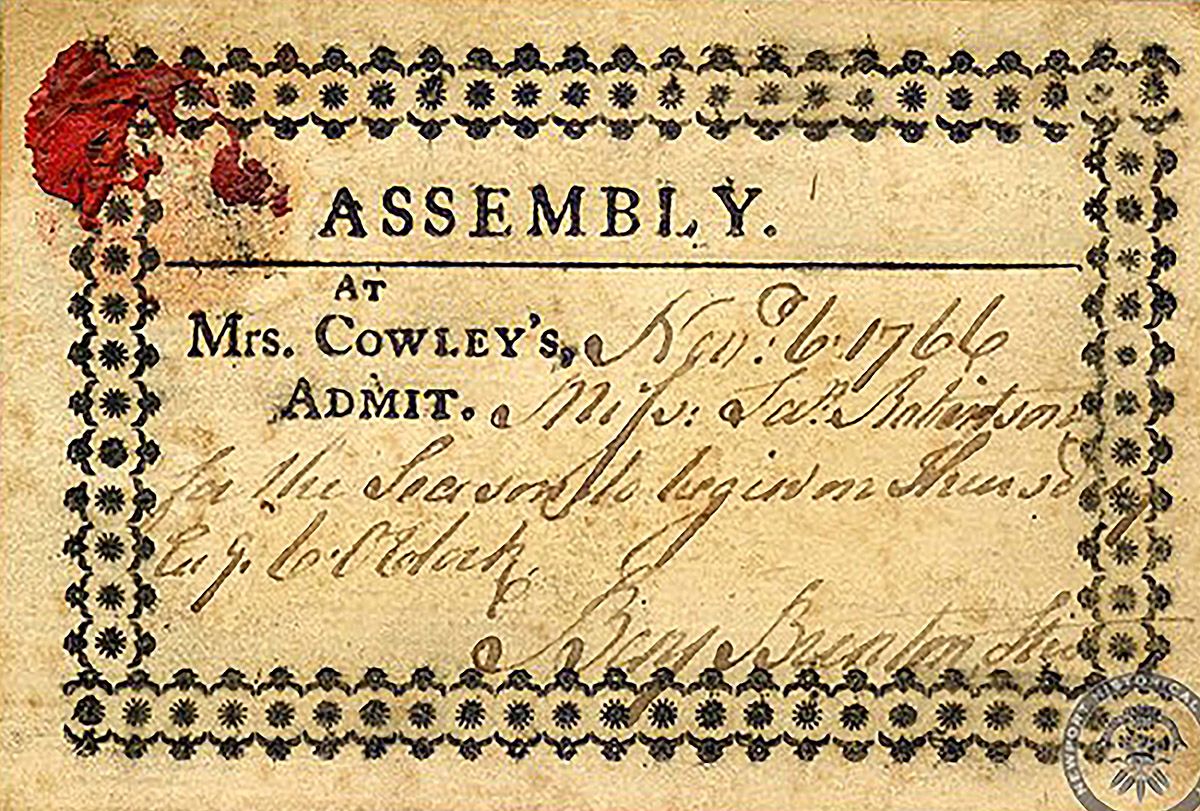 ASSEMBLY.
AT
Mrs. COWLEY's, Novr. 6. 1766
ADMIT. Miss: Sah. Robinson
for the Season to begin on Thursdy
6. O'Clock
Benj Brenton
NEWPORT HISTORICAL